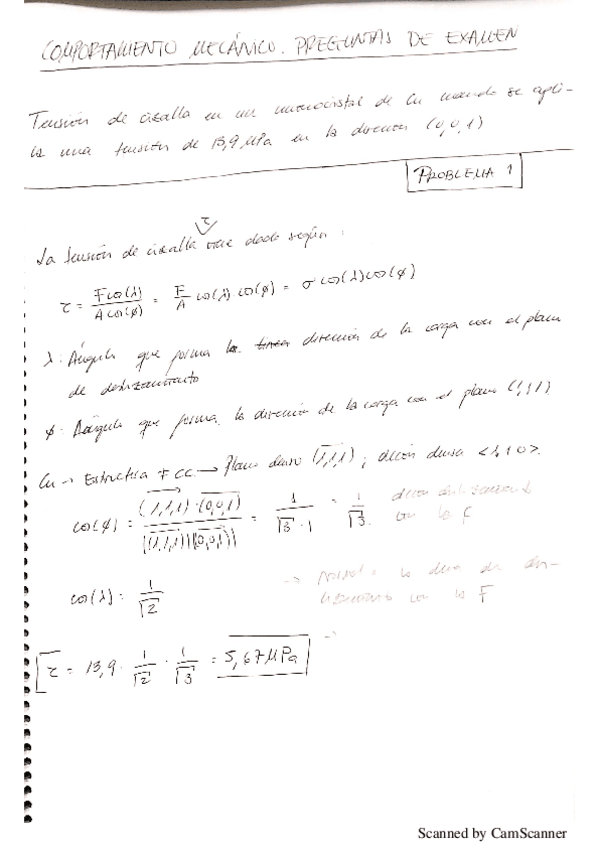 COMPORTAMIENTO MECÁNICO. PREGUNTAS DE EXAMEN
Tensión de cizalla en un monocristal de Cu cuando se apli-
ca una tensión de 13,9 MPa en la dirección (0,0,1)
PROBLEMA 1
τ
La tensión de cizalla viene dado según:
τ = F cos(λ) / A cos(φ) = F/A cos(λ)·cos(φ) = σ cos(λ) cos(φ)
λ: Ángulo que forma la dirección de la carga con el plano
de deslizamiento
φ: Ángulo que forma la dirección de la carga con el plano (1,1,1)
Cu → Estructura FCC → Plano denso (1,1,1); dirección densa <1,1,0>.
cos(φ) = (1,1,1)·(0,0,1) / |(1,1,1)||(0,0,1)| = 1/√3·1 = 1/√3
con la F
cos(λ) = 1/√2
con la F
τ = 13,9 · 1/√2 · 1/√3 = 5,67 MPa
Scanned by CamScanner